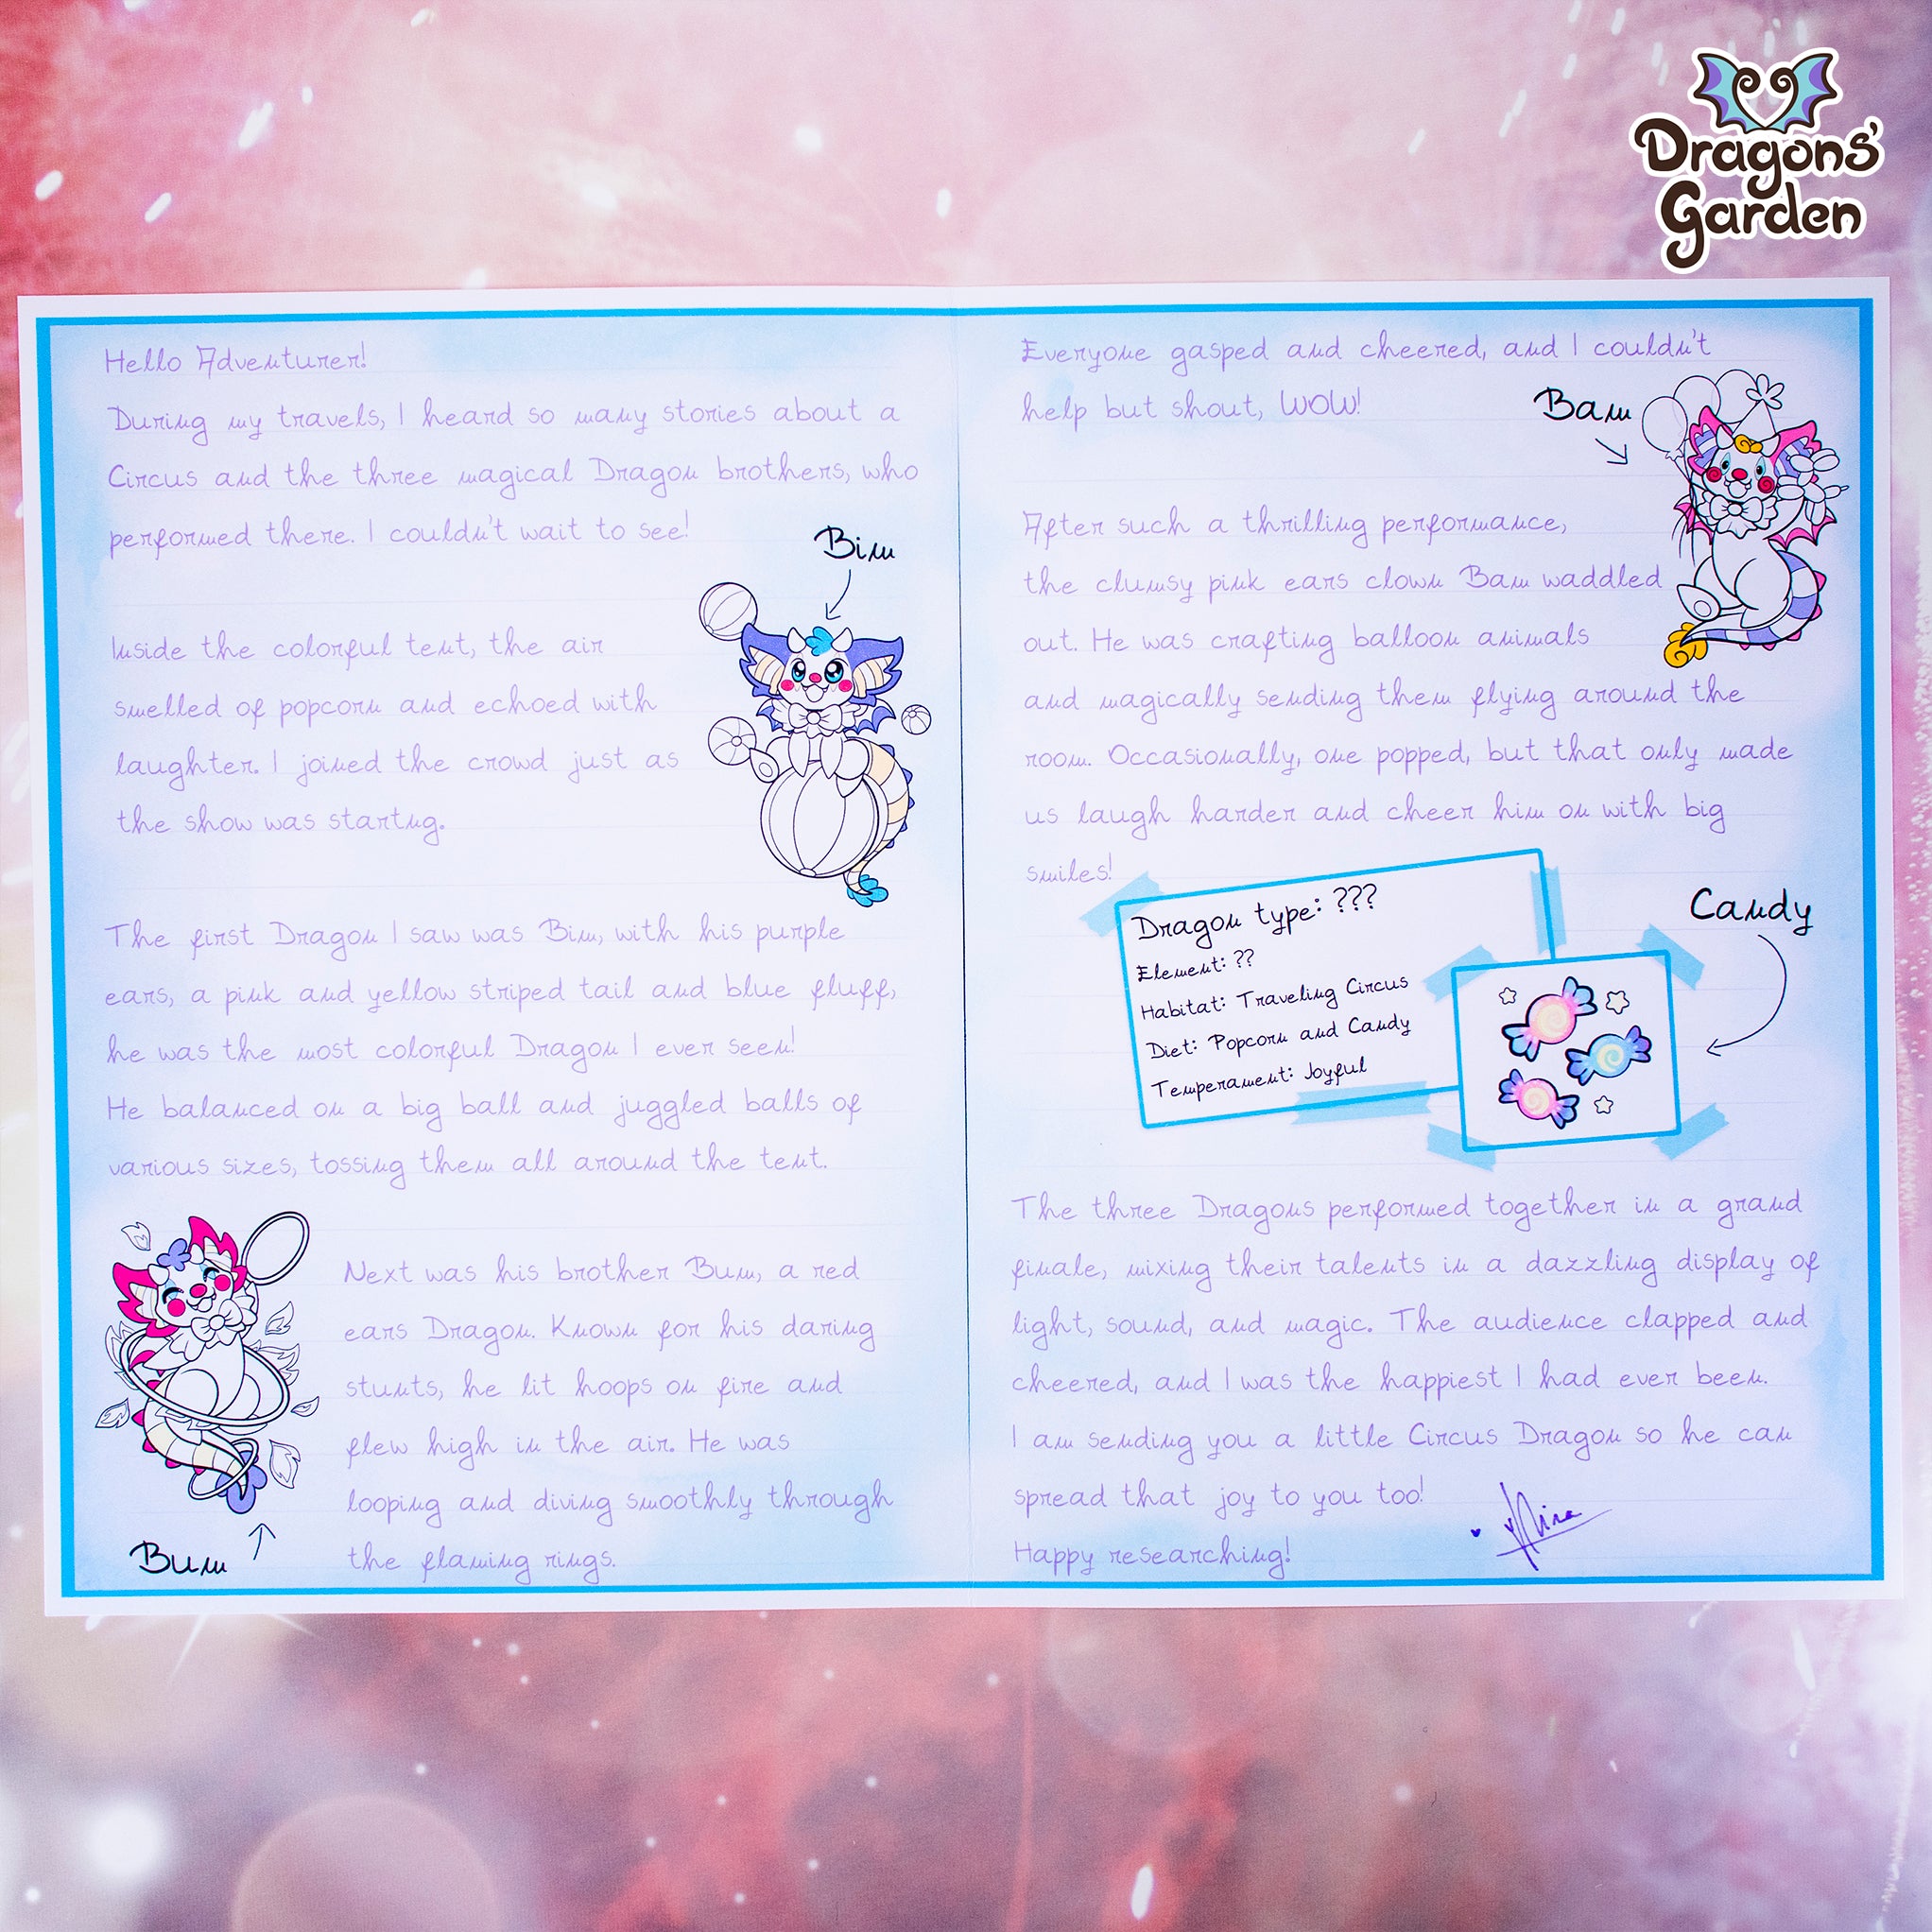 Dragons'
Garden
Hello Adventurer!
During my travels, I heard so many stories about a
Circus and the three magical Dragon brothers, who
performed there. I couldn't wait to see!
Bim
Inside the colorful tent, the air
smelled of popcorn and echoed with
laughter. I joined the crowd just as
the show was startng.
The first Dragon I saw was Bim, with his purple
ears, a pink and yellow striped tail and blue fluff,
he was the most colorful Dragon I ever seen!
He balanced on a big ball and juggled balls of
various sizes, tossing them all around the tent.
Next was his brother Bum, a red
ears Dragon. Known for his daring
stunts, he lit hoops on fire and
flew high in the air. He was
looping and diving smoothly through
the flaming rings.
Bum
Everyone gasped and cheered, and I couldn't
help but shout, WOW!
Bam
After such a thrilling performance,
the clumsy pink ears clown Bam waddled
out. He was crafting balloon animals
and magically sending them flying around the
room. Occasionally, one popped, but that only made
us laugh harder and cheer him on with big
smiles!
Dragon type: ???
Element: ??
Habitat: Traveling Circus
Diet: Popcorn and Candy
Temperament: Joyful
Candy
The three Dragons performed together in a grand
finale, mixing their talents in a dazzling display of
light, sound, and magic. The audience clapped and
cheered, and I was the happiest I had ever been.
I am sending you a little Circus Dragon so he can
spread that joy to you too!
Happy researching!